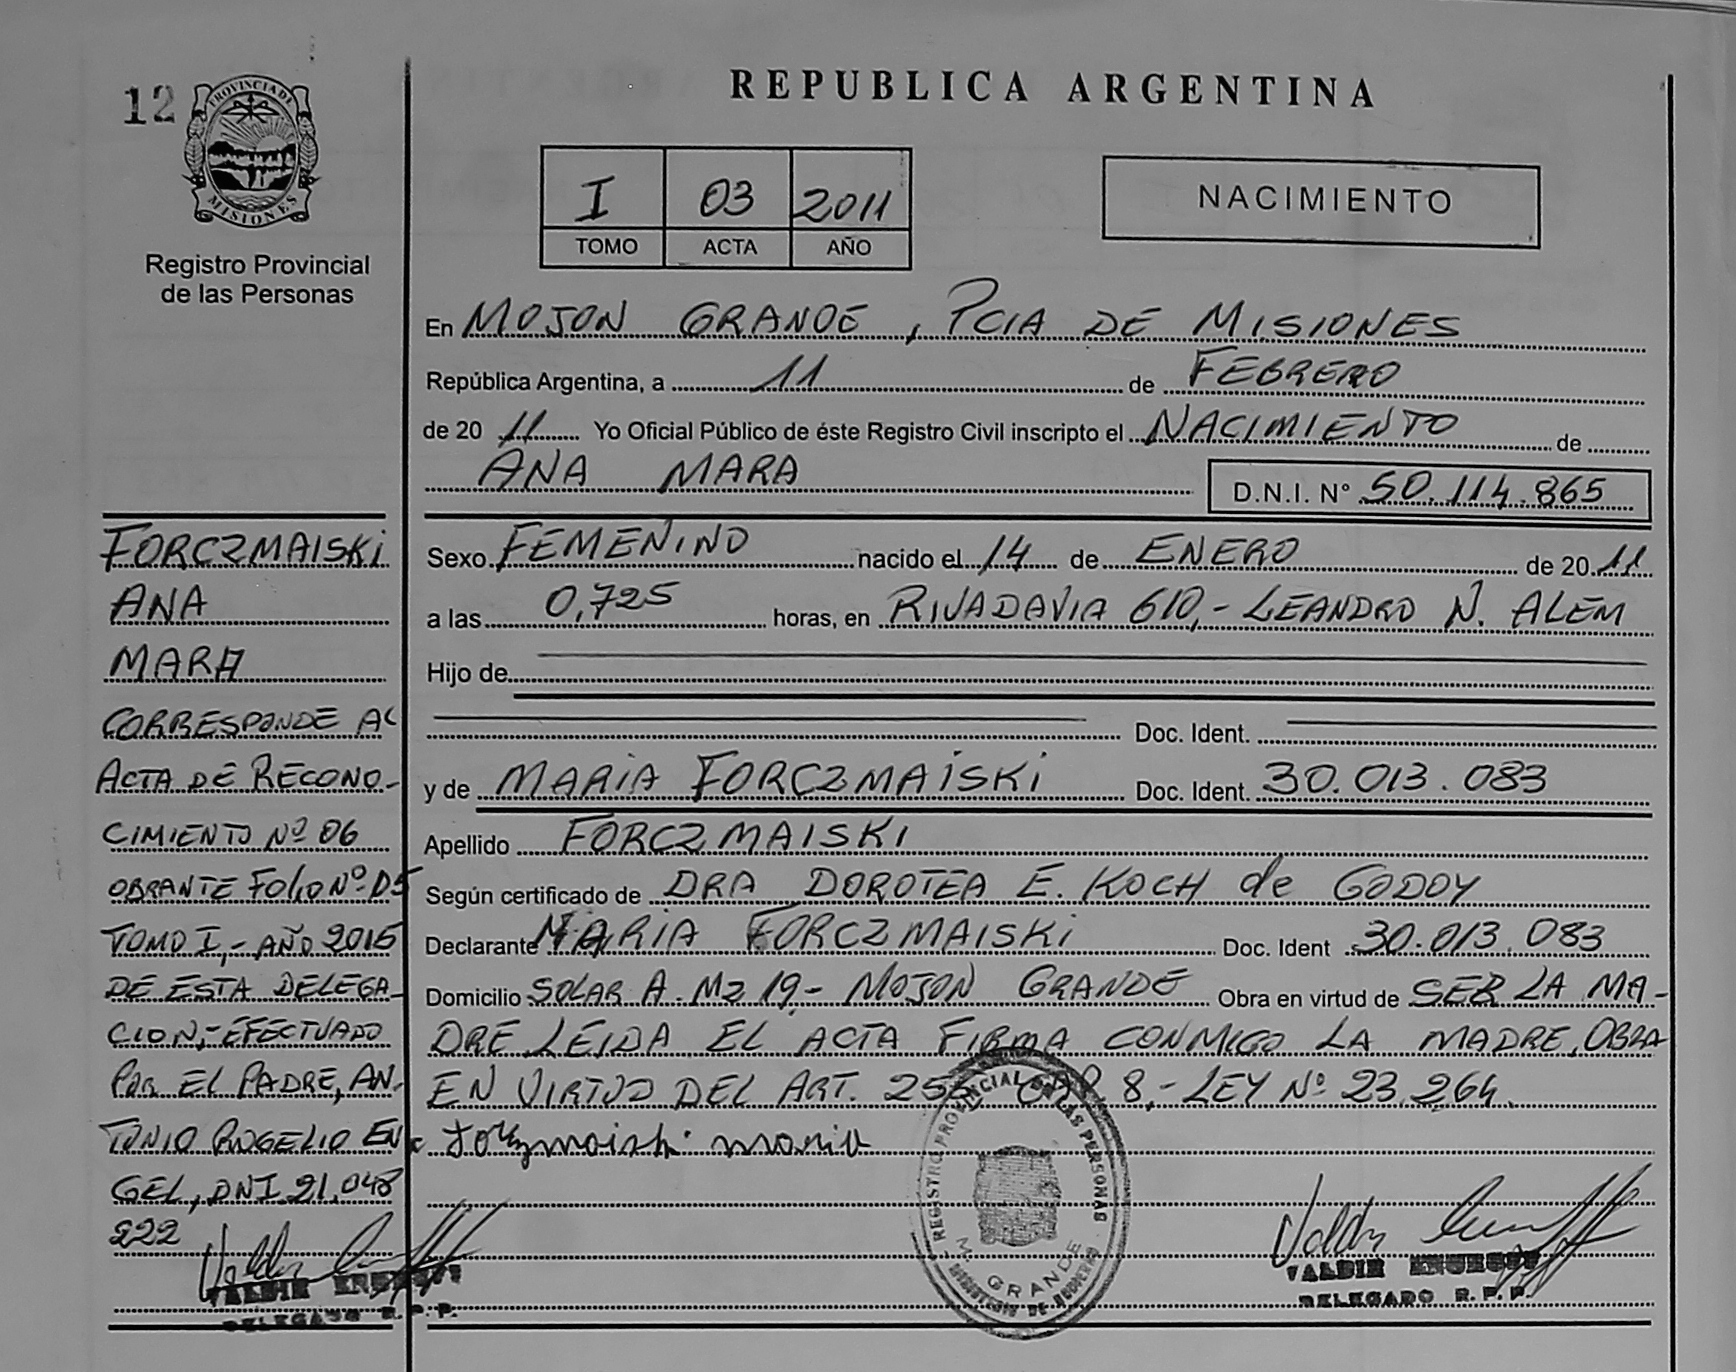 12
PROVINCIA DE
MISIONES
Registro Provincial
de las Personas
REPUBLICA ARGENTINA
I 03 2011
TOMO ACTA AÑO
NACIMIENTO
En MOJON GRANDE, PCIA DE MISIONES
República Argentina, a 11 de FEBRERO
de 20 11 Yo Oficial Público de éste Registro Civil inscripto el NACIMIENTO de
ANA MARA
D.N.I. N° 50.114.865
Sexo FEMENINO nacido el 14 de ENERO de 20 11
a las 0,725 horas, en RIVADAVIA 610,- LEANDRO N. ALEM
Hijo de
Doc. Ident.
y de MARIA FORCZMAISKI Doc. Ident. 30.013.083
Apellido FORCZMAISKI
Según certificado de DRA DOROTEA E. KOCH de GODOY
Declarante MARIA FORCZMAISKI Doc. Ident 30.013.083
Domicilio SOLAR A. Mz 19,- MOJON GRANDE Obra en virtud de SER LA MA-
DRE LEIDA EL ACTA FIRMA CONMIGO LA MADRE, OBRA
EN VIRTUD DEL ART. 8,- LEY Nº 23.264.
Forczmaiski maria
FORCZMAISKI
ANA
MARA
CORRESPONDE AL
ACTA DE RECONO-
CIMIENTO Nº 06
OBRANTE FOLIO Nº 05
TOMO I,- AÑO 2015
DE ESTA DELEGA-
CION,- EFECTUADO
POR EL PADRE, AN-
TONIO ROGELIO EN
GEL, DNI 21.048
222
VALDIR
DELEGADO R.P.P.
REGISTRO PROVINCIAL DE LAS PERSONAS
M. GRANDE
VALDIR
DELEGADO R.P.P.